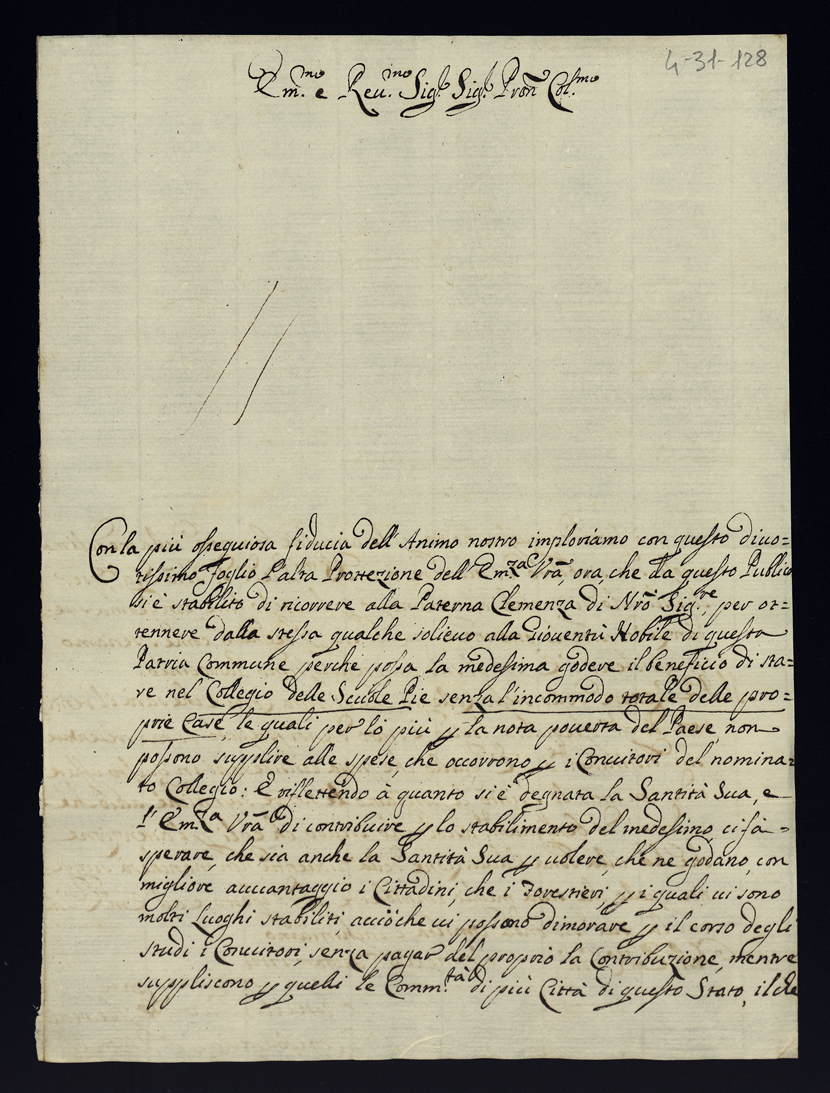 4-31-128
Em.mo e Reu.mo Sig.r Sig.r Pron̄ Col.mo
Con la più ossequiosa fiducia dell'Animo nostro imploriamo con questo diuo=
tissimo foglio l'alta Protezione dell'Em.za Vrā, ora, che da questo Publico
si è stabilito di ricorrere alla Paterna Clemenza di Nrō Sig.re, per ot=
tennere dalla stessa qualche solieuo alla Giouentù Nobile di questa
Patria Commune perche possa la medesima godere il beneficio di sta=
re nel Collegio delle Scuole Pie senza l'incommodo totale delle pro=
prie Case, le quali per lo più p la nota pouertà del Paese, non
possono supplire alle spese, che occorrono p i Conuitori del nomina=
to Collegio: E riflettendo à quanto si è degnata la Santità Sua, e
l'Em.za Vrā di contribuire p lo stabilimento del medesimo, ci fà
sperare, che sia anche la Santità Sua p uolere, che ne godano, con
migliore auuantaggio i Cittadini, che i Forestieri, p i quali ui sono
molti Luoghi stabiliti acciòche ui possono dimorare p il corso degli
studi i Conuitori, senza pagar del proprio la Contribuzione, mentre
suppliscono p quelli le Comm.tà di più Città di questo Stato, il che